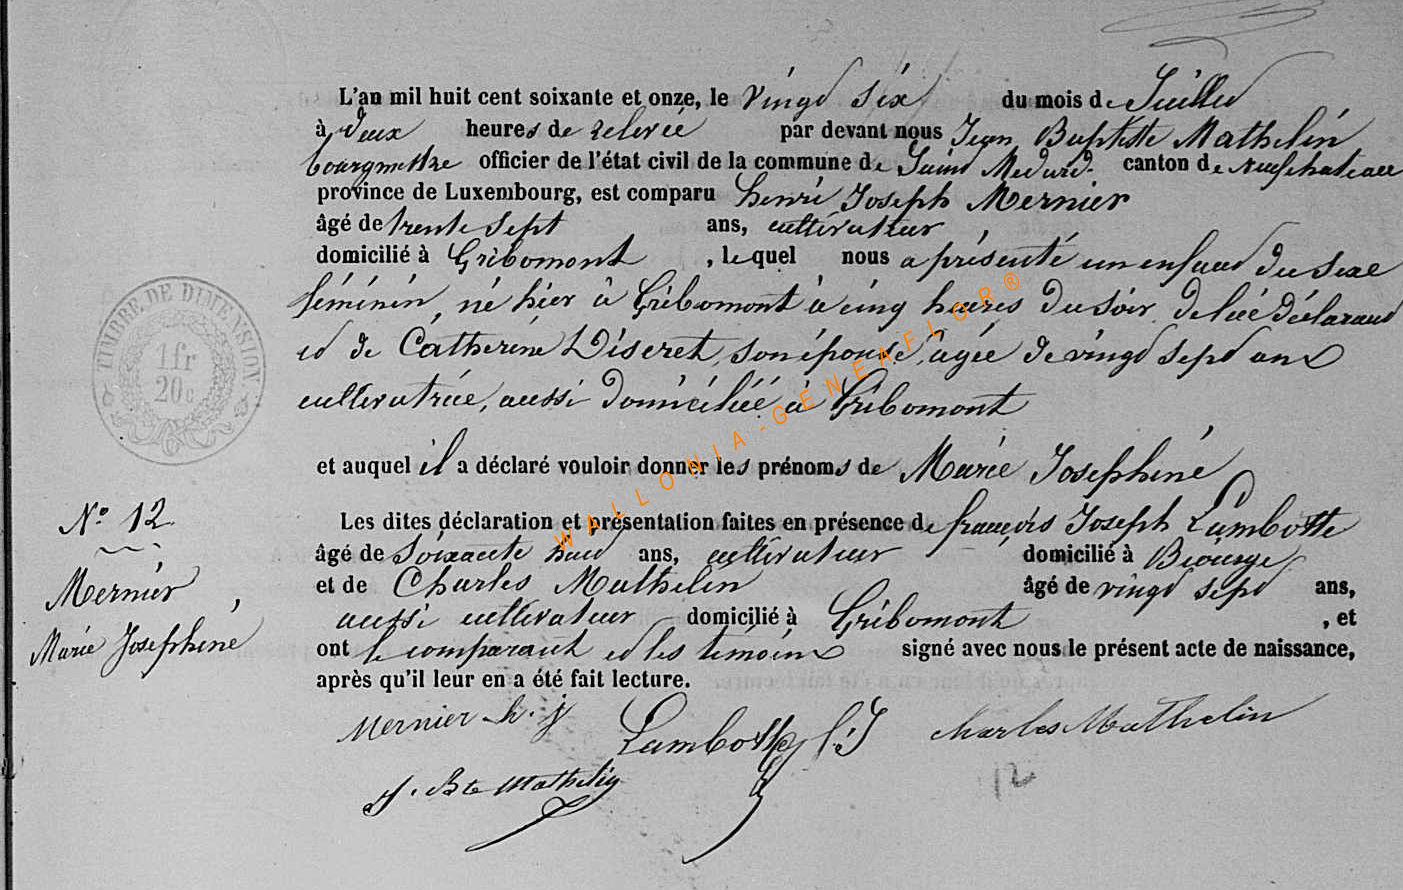 L'an mil huit cent soixante et onze, le vingt six du mois de Juillet
à deux heures de relevée par devant nous Jean Baptiste Mathelin
bourgmestre officier de l'état civil de la commune de Saint Médard canton de neufchateau
province de Luxembourg, est comparu henri Joseph Mernier
âgé de trente sept ans, cultivateur
domicilié à Gribomont, lequel nous a présenté un enfant du sexe
féminin, né hier à Gribomont à cinq heures du soir de lui déclarant
et de Catherine Diseret, son épouse, agée de vingt sept ans
cultivatrice, aussi domiciliée à Gribomont
et auquel il a déclaré vouloir donner les prénoms de Marie Josephine
Les dites déclaration et présentation faites en présence de françois Joseph Lambotte
âgé de Soixante huit ans, cultivateur domicilié à
et de Charles Mathelin âgé de vingt sept ans,
aussi cultivateur domicilié à Gribomont, et
ont le comparant et les témoins signé avec nous le présent acte de naissance,
après qu'il leur en a été fait lecture.
Mernier h. j Lambotte f. J Charles Mathelin
J. Bte Mathelin
12
N° 12
Mernier,
Marie Josephine
TIMBRE DE DIMENSION
1 fr
20 c
WALLONIA-GENEAFLOR®